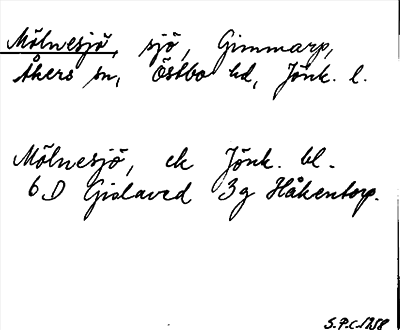 Mölnesjö, sjö, Gimmarp,
Åkers sn, Östbo hd, Jönk. l.
Mölnesjö, ek Jönk. bl.
6D Gislaved 3g Håkentorp.
S.P.C. 1958